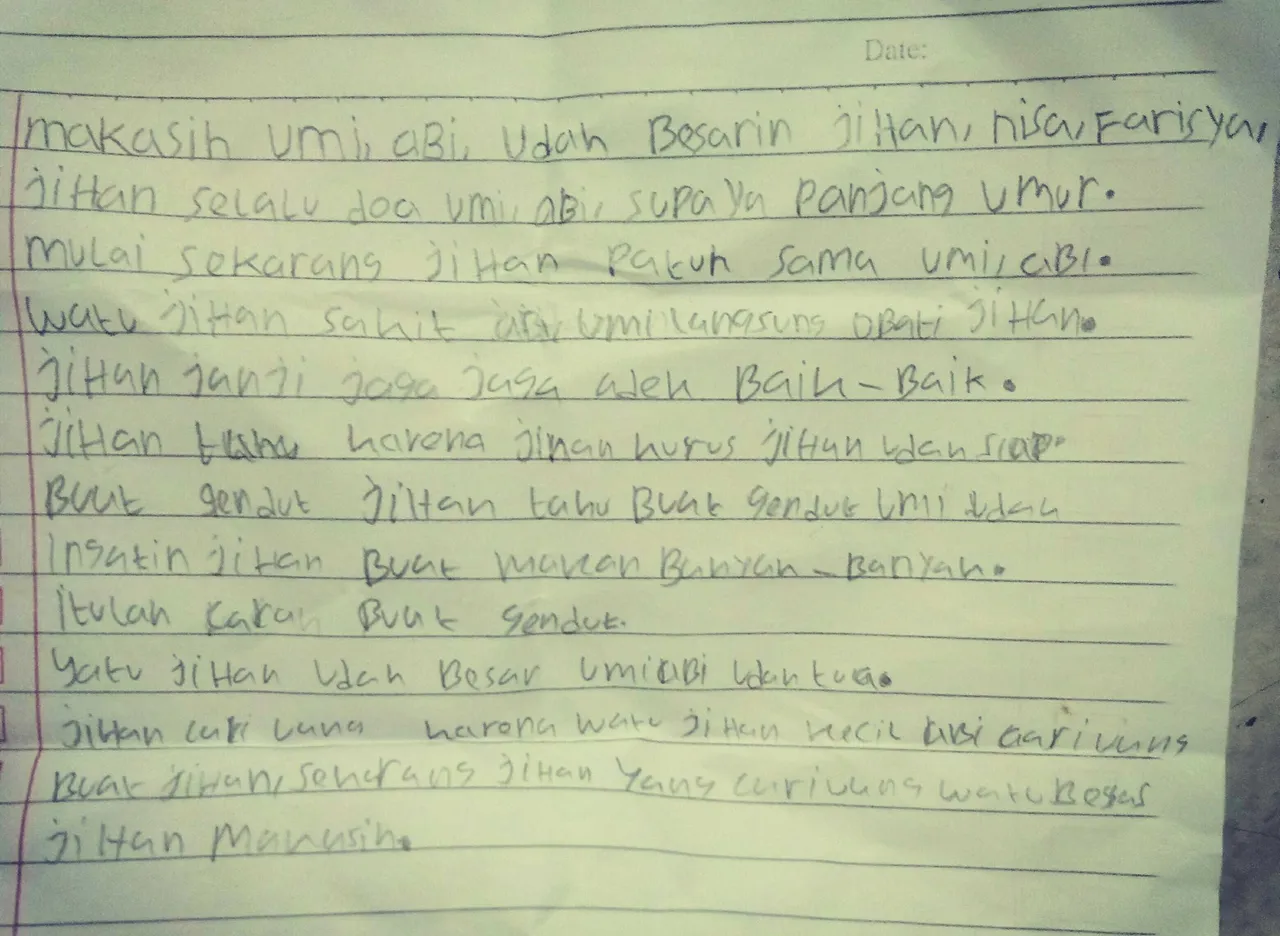 Date:
makasih umi, aBi, Udah Besarin jiHan, nisa, Farisya,
jiHan selalu doa umi, aBi, supaya panjang umur.
mulai sekarang jiHan patuh sama umi, aBI.
watu jiHan sahit umi langsung oBati jiHan.
jiHan janji jaga jaga adeh Baih-Baik.
jiHan harena jihan hurus jiHan udah siap
Buat gendut jiHan tahu Buat gendut umi udah
Ingatin jiHan Buat makan Banyah-Banyah.
itulah Buat gendut.
yatu jiHan Udah Besar umi aBi udah tua.
jiHan cari harena watu jiHan hecil aBi cari uang
Buat jiHan, seharang jiHan yang cari uang watu Besar
jiHan Manusih.